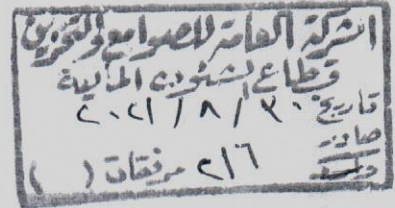 الشركة العامة للصوامع والتخزين
قطاع الشئون المالية
تاريخ ٣٠ / ٨ / ٢٠٢١
صادر ٢١٦ مرفقات ( )
وارد